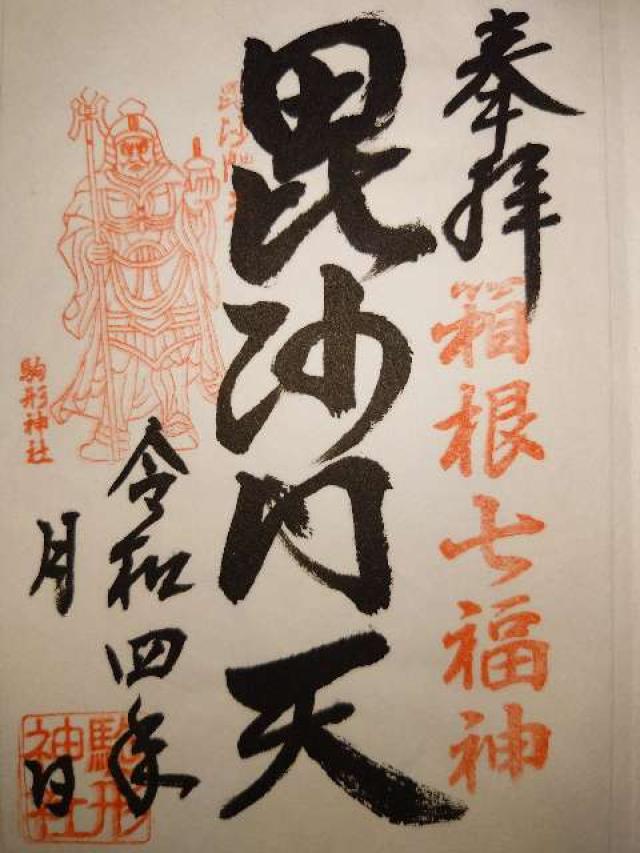 奉拝
箱根七福神
毘沙門天
毘沙門天
駒形神社
令和四年
月
日
駒形
神社